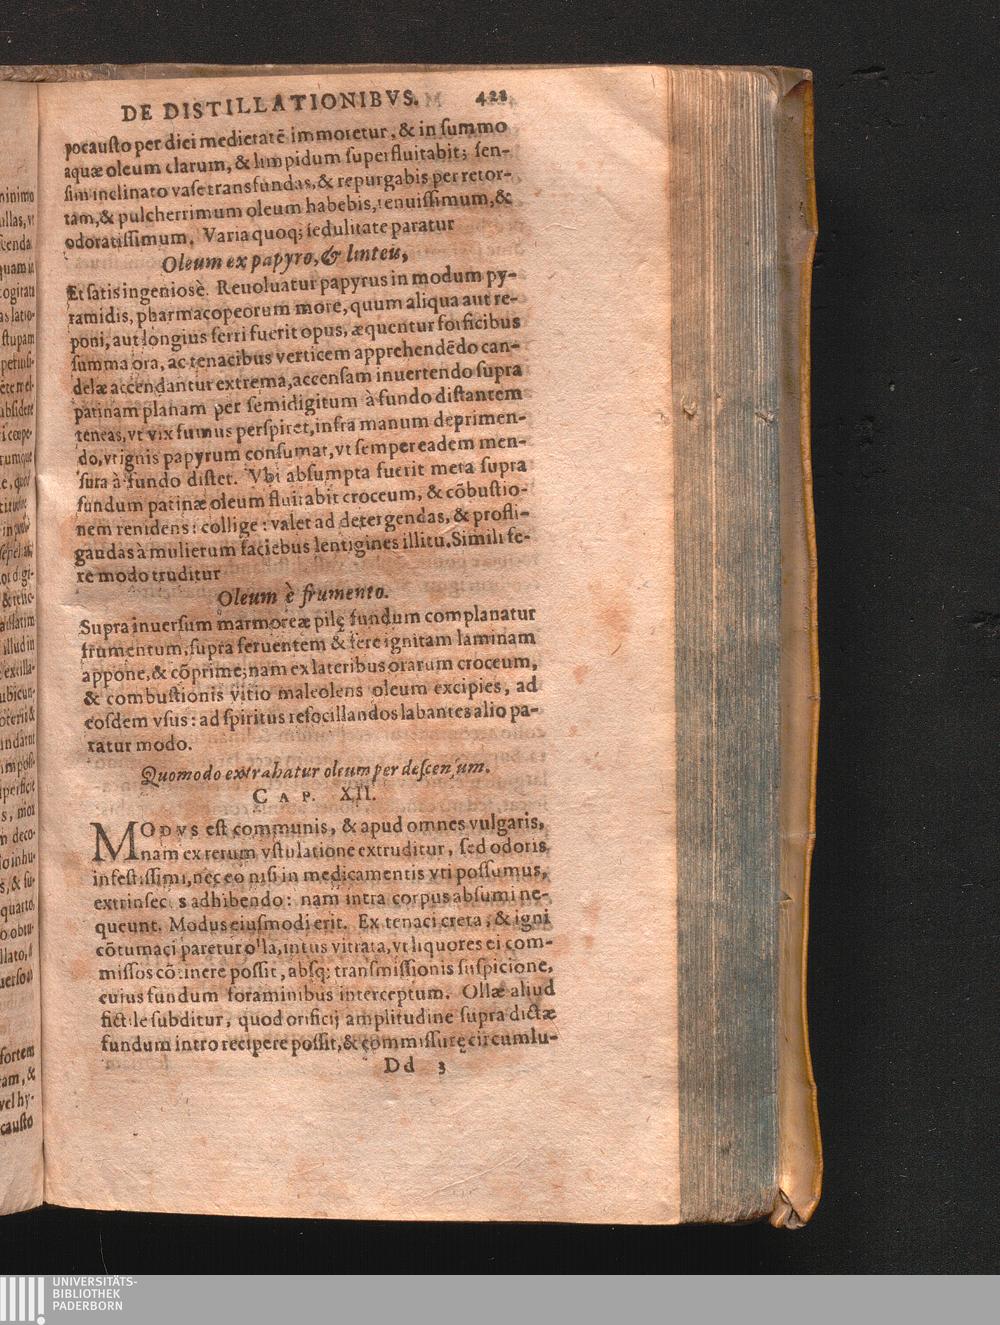 DE DISTILLATIONIBVS. 421
pocausto per diei medietatē immoretur, & in summo
aquæ oleum clarum, & limpidum superfluitabit; sen-
sim inclinato vase transfundas, & repurgabis per retor-
tam, & pulcherrimum oleum habebis, tenuissimum, &
odoratissimum. Varia quoq; sedulitate paratur
Oleum ex papyro, & linteis,
Et satis ingeniosè. Reuoluatur papyrus in modum py-
ramidis, pharmacopeorum more, quum aliqua aut re-
poni, aut longius ferri fuerit opus, æquentur forficibus
summa ora, ac tenacibus verticem apprehendēdo can-
delæ accendantur extrema, accensam inuertendo supra
patinam planam per semidigitum à fundo distantem
teneas, vt vix fumus perspiret, infra manum deprimen-
do, vt ignis papyrum consumat, vt semper eadem men-
sura à fundo distet. Vbi absumpta fuerit meta supra
fundum patinæ oleum fluitabit croceum, & cōbustio-
nem renidens: collige: valet ad detergendas, & profli-
gandas à mulierum faciebus lentigines illitu. Simili fe-
re modo truditur
Oleum è frumento.
Supra inuersum marmoreæ pilę fundum complanatur
frumentum, supra feruentem & fere ignitam laminam
appone, & cōprime; nam ex lateribus orarum croceum,
& combustionis vitio maleolens oleum excipies, ad
eosdem vsus: ad spiritus refocillandos labantes alio pa-
ratur modo.
Quomodo extrahatur oleum per descensum.
CAP. XII.
MODVS est communis, & apud omnes vulgaris,
nam ex rerum vstulatione extruditur, sed odoris
infestissimi, nec eo nisi in medicamentis vti possumus,
extrinsecus adhibendo: nam intra corpus absumi ne-
queunt. Modus eiusmodi erit. Ex tenaci creta, & igni
cōtumaci paretur olla, intus vitrata, vt liquores ei com-
missos cōtinere possit, absq; transmissionis suspicione,
cuius fundum foraminibus interceptum. Ollæ aliud
fictile subditur, quod orificij amplitudine supra dictæ
fundum intro recipere possit, & commissurę circumlu-
Dd 3
UNIVERSITÄTS-
BIBLIOTHEK
PADERBORN